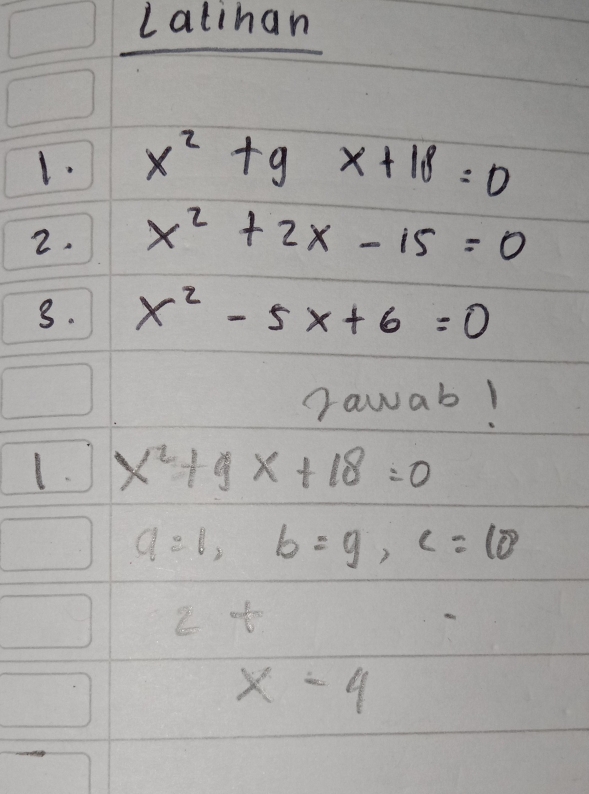 Latihan
1. x² + 9 x + 18 = 0
2. x² + 2x - 15 = 0
3. x² - 5x + 6 = 0
Jawab!
1. x² + 9 x + 18 = 0
a = 1, b = 9, c = 18
2 + -
x - 9